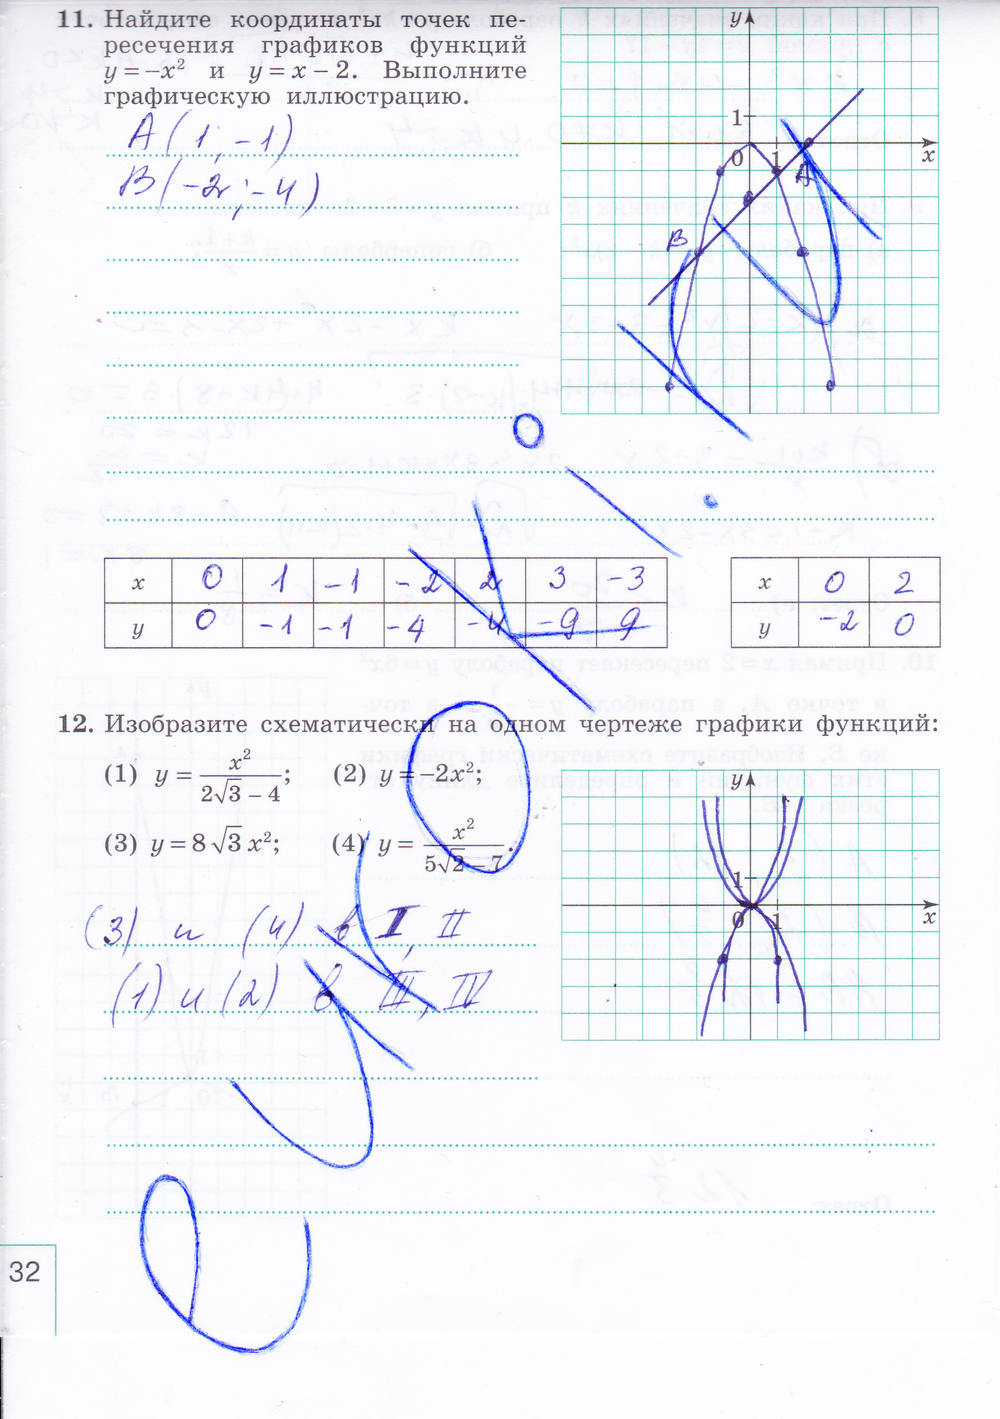 11. Найдите координаты точек пе-
ресечения графиков функций
y = −x² и y = x − 2. Выполните
графическую иллюстрацию.
A (1; −1)
B (−2; −4)
y
1
0
1
x
A
B
x 0 1 −1 −2 2 3 −3
y 0 −1 −1 −4 −4 −9 9
x 0 2
y −2 0
12. Изобразите схематически на одном чертеже графики функций:
(1) y = x²/(2√3 − 4); (2) y = −2x²;
(3) y = 8√3 x²; (4) y = x²/(5√2 − 7).
(3) и (4) в I, II
(1) и (2) в III, IV
y
1
0
1
x
32